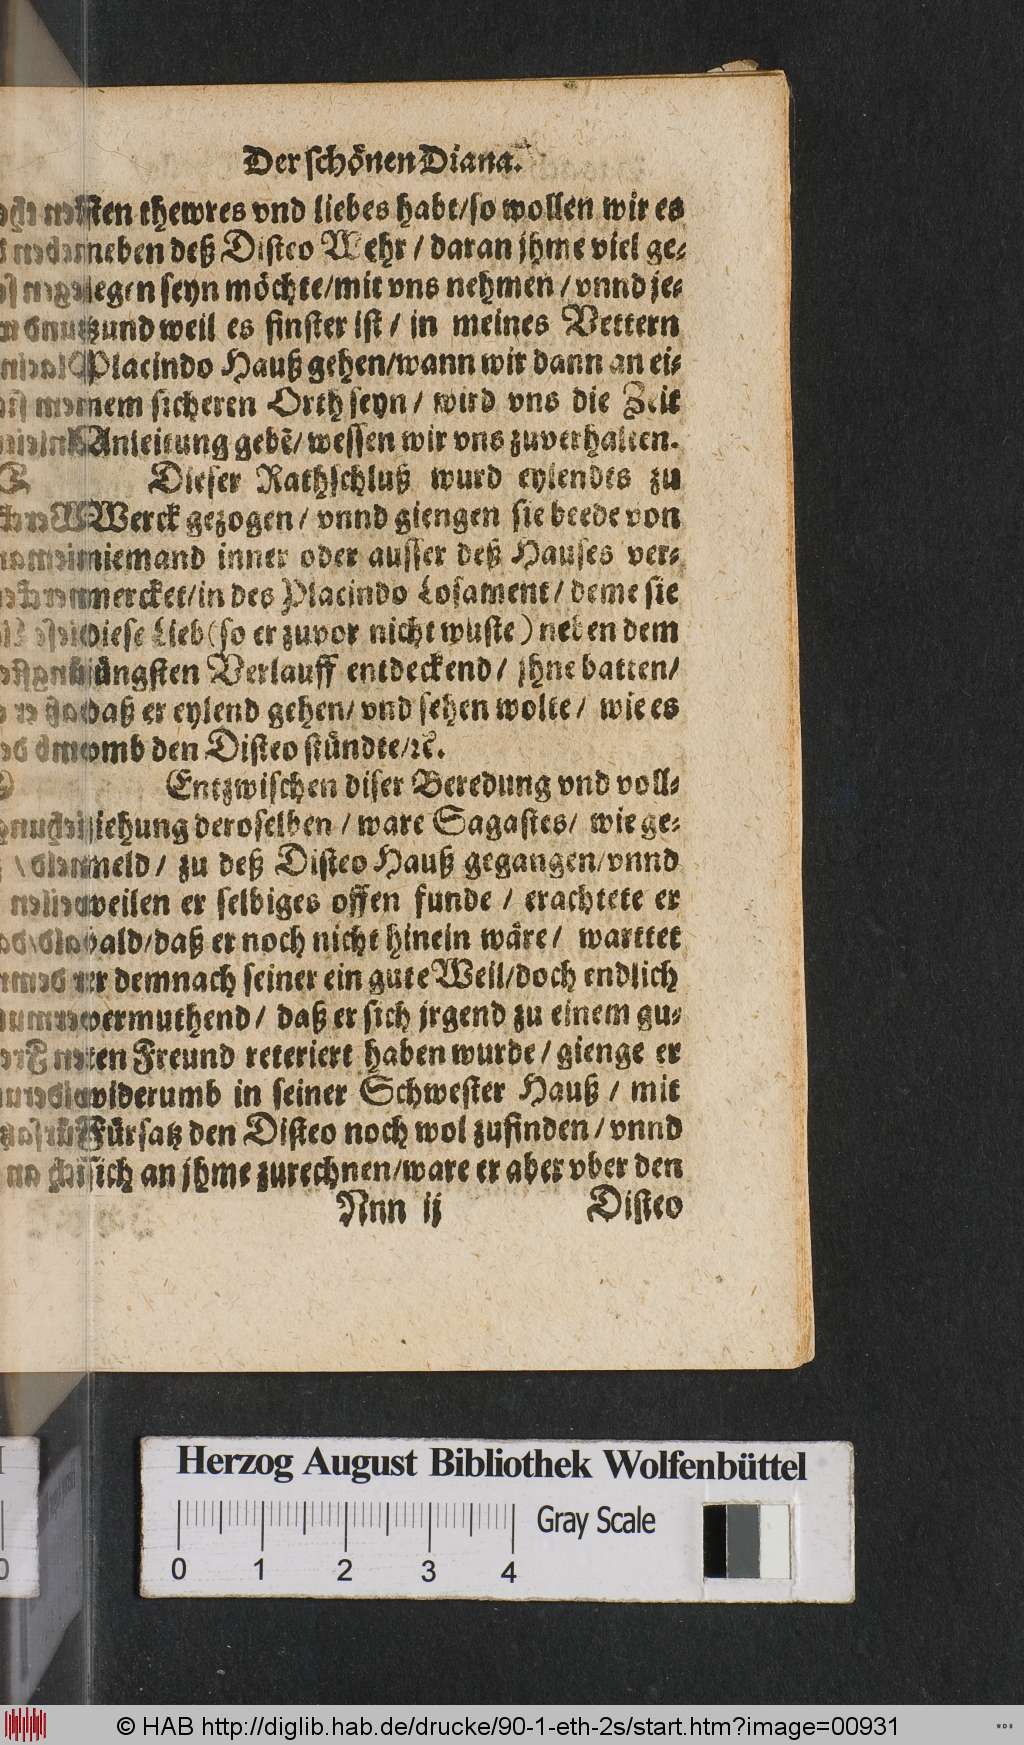 Der schönen Diana.
sten thewres vnd liebes habt/so wollen wir es
neben deß Disteo Wehr / daran jhme viel ge-
legen seyn möchte/mit vns nehmen / vnnd je-
tzund weil es finster ist / in meines Vettern
Placindo Hauß gehen/wann wir dann an ei-
nem sicheren Orth seyn / wird vns die Zeit
Anleitung gebē/ wessen wir vns zuverhalten.
Dieser Rathschluß wurd eylendes zu
Werck gezogen / vnnd giengen sie beede von
niemand inner oder ausser deß Hauses ver-
mercket/in des Placindo Losament / deme sie
diese Lieb (so er zuvor nicht wuste) neben dem
jüngsten Verlauff entdeckend / jhne batten/
daß er eylend gehen/ vnd sehen wolte / wie es
vmb den Disteo stündte/ꝛc.
Entzwischen diser Beredung vnd voll-
ziehung deroselben / ware Sagastes/ wie ge-
meld / zu deß Disteo Hauß gegangen/vnnd
weilen er selbiges offen funde / erachtete er
bald/daß er noch nicht hinein wäre / warttet
er demnach seiner ein gute Weil/doch endlich
vermuthend / daß er sich jrgend zu einem gu-
ten Freund reteriert haben wurde / gienge er
widerumb in seiner Schwester Hauß / mit
Fürsatz den Disteo noch wol zufinden / vnnd
sich an jhme zurechnen/ware er aber vber den
Nnn ij Disteo
Herzog August Bibliothek Wolfenbüttel
Gray Scale
0 1 2 3 4
© HAB http://diglib.hab.de/drucke/90-1-eth-2s/start.htm?image=00931